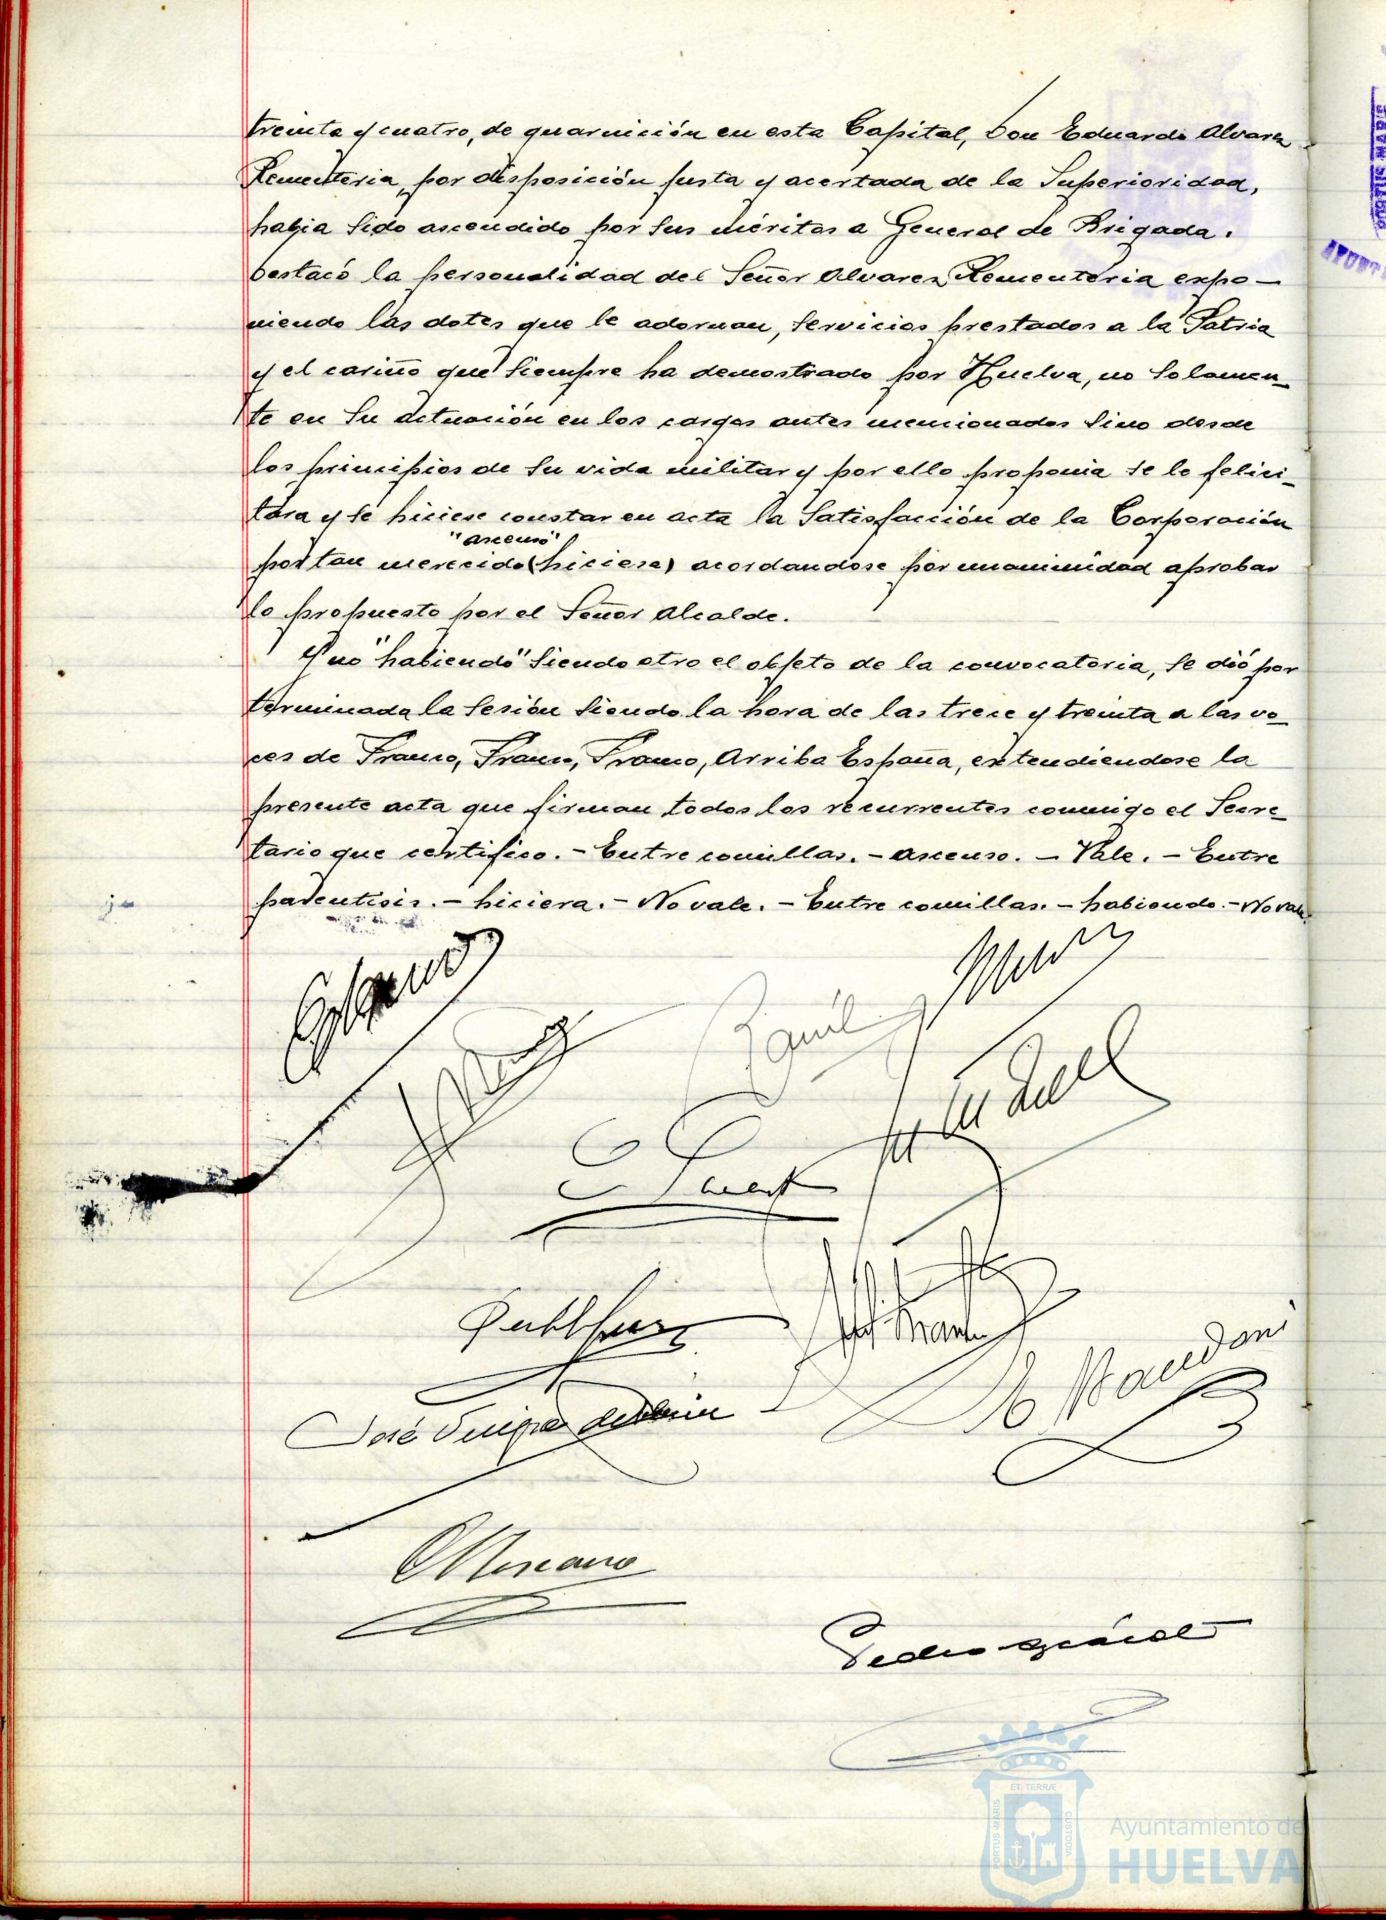 treinta y cuatro, de guarnición en esta Capital, Don Eduardo Alvarez
Rementeria, por disposición justa y acertada de la Superioridad,
habia sido ascendido por sus méritos a General de Brigada.
Destacó la personalidad del Señor Alvarez Rementeria expo-
niendo las dotes que le adornan, servicios prestados a la Patria
y el cariño que siempre ha demostrado por Huelva, no solamen-
te en su actuación en los cargos antes mencionados sino desde
los principios de su vida militar y por ello proponia se le felici-
tara y se hiciese constar en acta la satisfacción de la Corporación
"ascenso"
por tan merecido (hiciese) acordandose por unanimidad aprobar
lo propuesto por el Señor Alcalde.
Y no "habiendo" siendo otro el objeto de la convocatoria, se dió por
terminada la sesión siendo la hora de las trece y treinta a las vo-
ces de Franco, Franco, Franco, Arriba España, extendiendose la
presente acta que firman todos los recurrentes conmigo el Secre-
tario que certifico. - Entre comillas. - ascenso. - Vale. - Entre
parentisis. - hiciera. - No vale. - Entre comillas. - habiendo. - No vale.
José
Pedro
PORTUS MARIS
ET TERRÆ
CUSTODIA
Ayuntamiento de
HUELVA
PORTUS MARIS